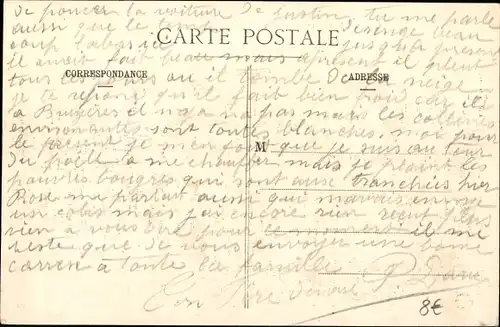 de pousser la voiture de justin, tu me parle
aussi que le temps change beau
CARTE POSTALE
coup labas ici jusqu'a present
il avait fait beau mais apresent il pleut
CORRESPONDANCE
ADRESSE
tous les jours ou il tombe de la neige
je te repond qu'il fait bien froid car ici
a Bruyères il n'y a pas mais les collines
environantes sont toutes blanches, moi pour
M
le present je me fou que je suis au tour
du poele a me chauffer mais je plaint les
pauvres bougres qui sont aux tranchées hier
Rose me parlait aussi qui m'avais envoye
un colis mais j'ai encore rien reçut plus
rien a vous dire pour ce moment il me
reste que de vous envoyer une bonne
a toute la famille
Ton frère
8€